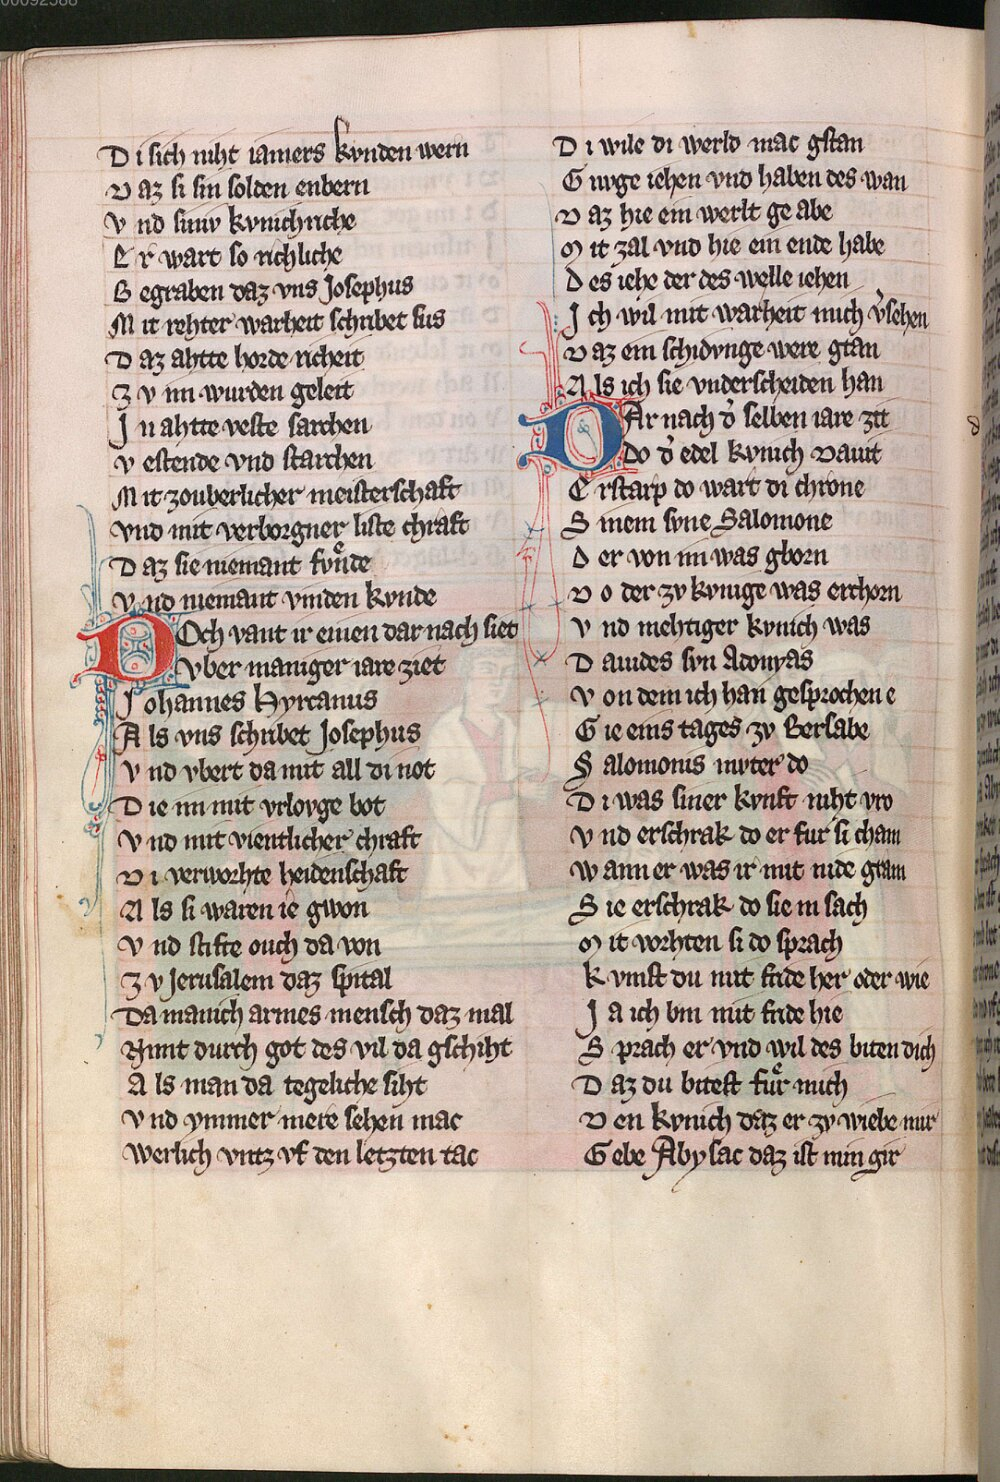 Di sich niht iamers kvnden wern
Daz si sin solden enbern
Vnd sinv kvnichriche
Er wart so richliche
Begraben daz vns Josephus
Mit rehter warheit schribet sus
Daz ahtte horde richeit
Zv im wurden geleit
Jn ahtte veste sarchen
Vestende vnd starchen
Mit zouberlicher meisterschaft
vnd mit verborgner liste chraft
Daz sie niemant fvnde
Vnd niemant vinden kvnde
Doch vant ir einen dar nach siet
Vber maniger iare ziet
Johannes Hyrcanus
Als vns schribet Josephus
Vnd vbert da mit all di not
Die im mit vrlovge bot
Vnd mit vientlicher chraft
Di verworhte heidenschaft
Als si waren ie gwon
Vnd stifte ouch da von
Zv Jerusalem daz spital
Da manich armes mensch daz mal
Nimt durch got des vil da gschiht
Als man da tegeliche siht
Vnd ymmer mere sehen mac
Werlich vntz vf den letzten tac
Di wile di werld mac gstan
Gnvge iehen vnd haben des wan
Daz hie ein werlt ge abe
Mit zal vnd hie ein ende habe
Des iehe der des welle iehen
Jch wil mit warheit mich v'sehen
Daz ein schidvnge were gtan
Als ich sie vnderscheiden han
DAr nach d' selben iare zit
Do d' edel kvnich Dauit
Erstarp do wart di chrone
Sinem svne Salomone
Der von im was gborn
Vo der zv kvnige was erchorn
Vnd mehtiger kvnich was
Dauides svn Adonyas
Von dem ich han gesprochen e
Gie eins tages zv Bersabe
Salomonis mvter do
Di was siner kvnft niht vro
Vnd erschrak do er fur si cham
Wann er was ir mit nide gram
Sie erschrak do sie in sach
Mit vorhten si do sprach
Kvmst du mit fride her oder wie
Ja ich bin mit fride hie
Sprach er vnd wil des biten dich
Daz du bitest fuͤr mich
Den kvnich daz er zv wiebe mir
Gebe Abysac daz ist min gir